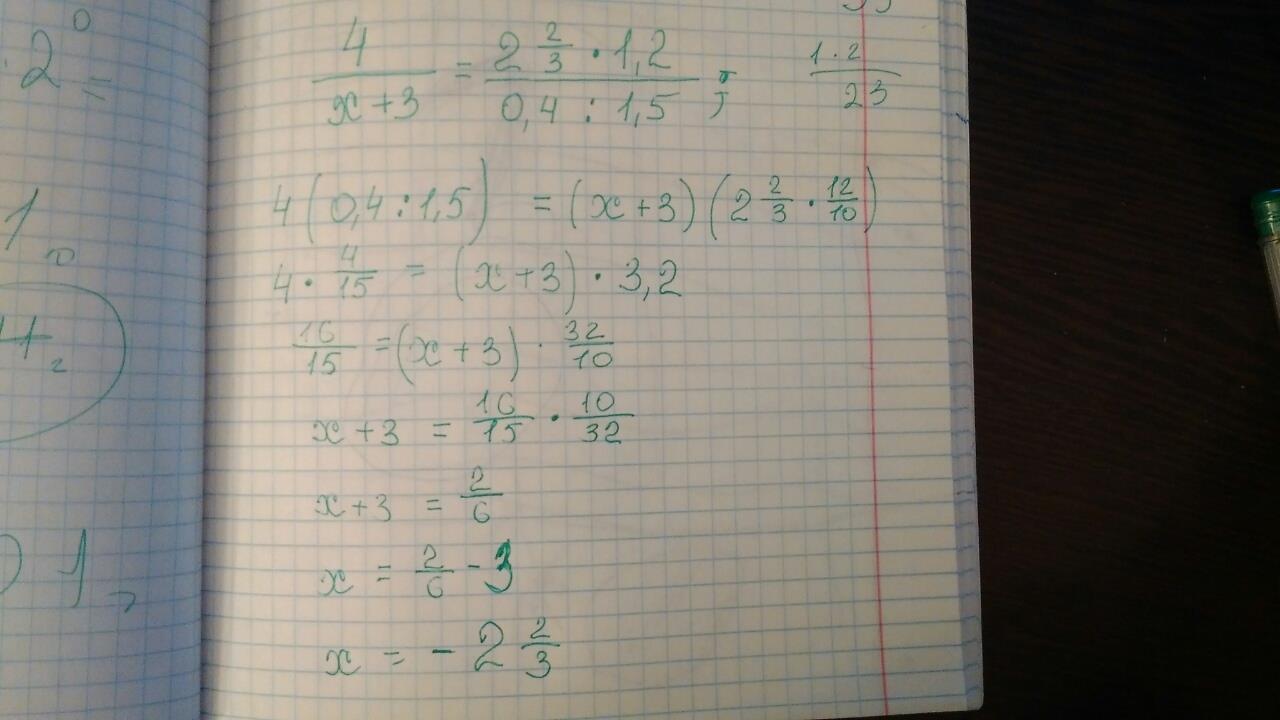 4/(x+3) = (2 2/3 · 1,2)/(0,4 : 1,5) ; 1·2/23
4(0,4 : 1,5) = (x+3)(2 2/3 · 12/10)
4 · 4/15 = (x+3) · 3,2
16/15 = (x+3) · 32/10
x+3 = 16/15 · 10/32
x+3 = 2/6
x = 2/6 - 3
x = - 2 2/3